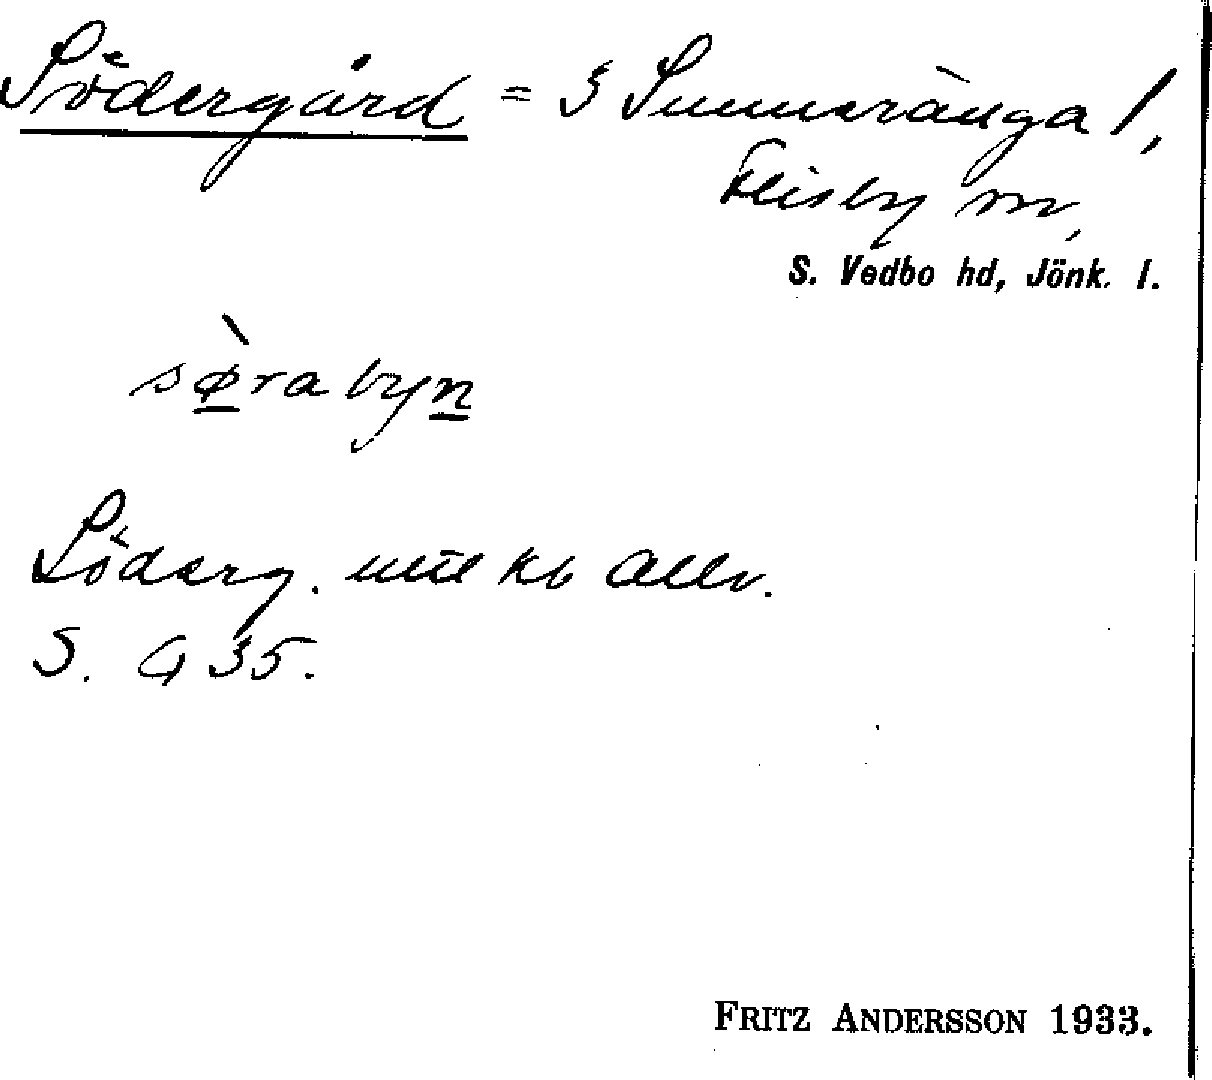 Södergård = 3 Summeränga 1,
Flisby sn,
S. Vedbo hd, Jönk. l.
sø̀rabyn
Söderg. kb allm.
S. G 35.
FRITZ ANDERSSON 1933.